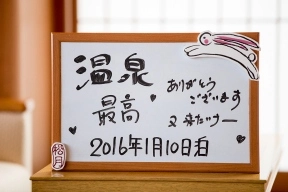 温泉
最高
ありがとう
ございます
又来たいナー
2016年1月10日泊